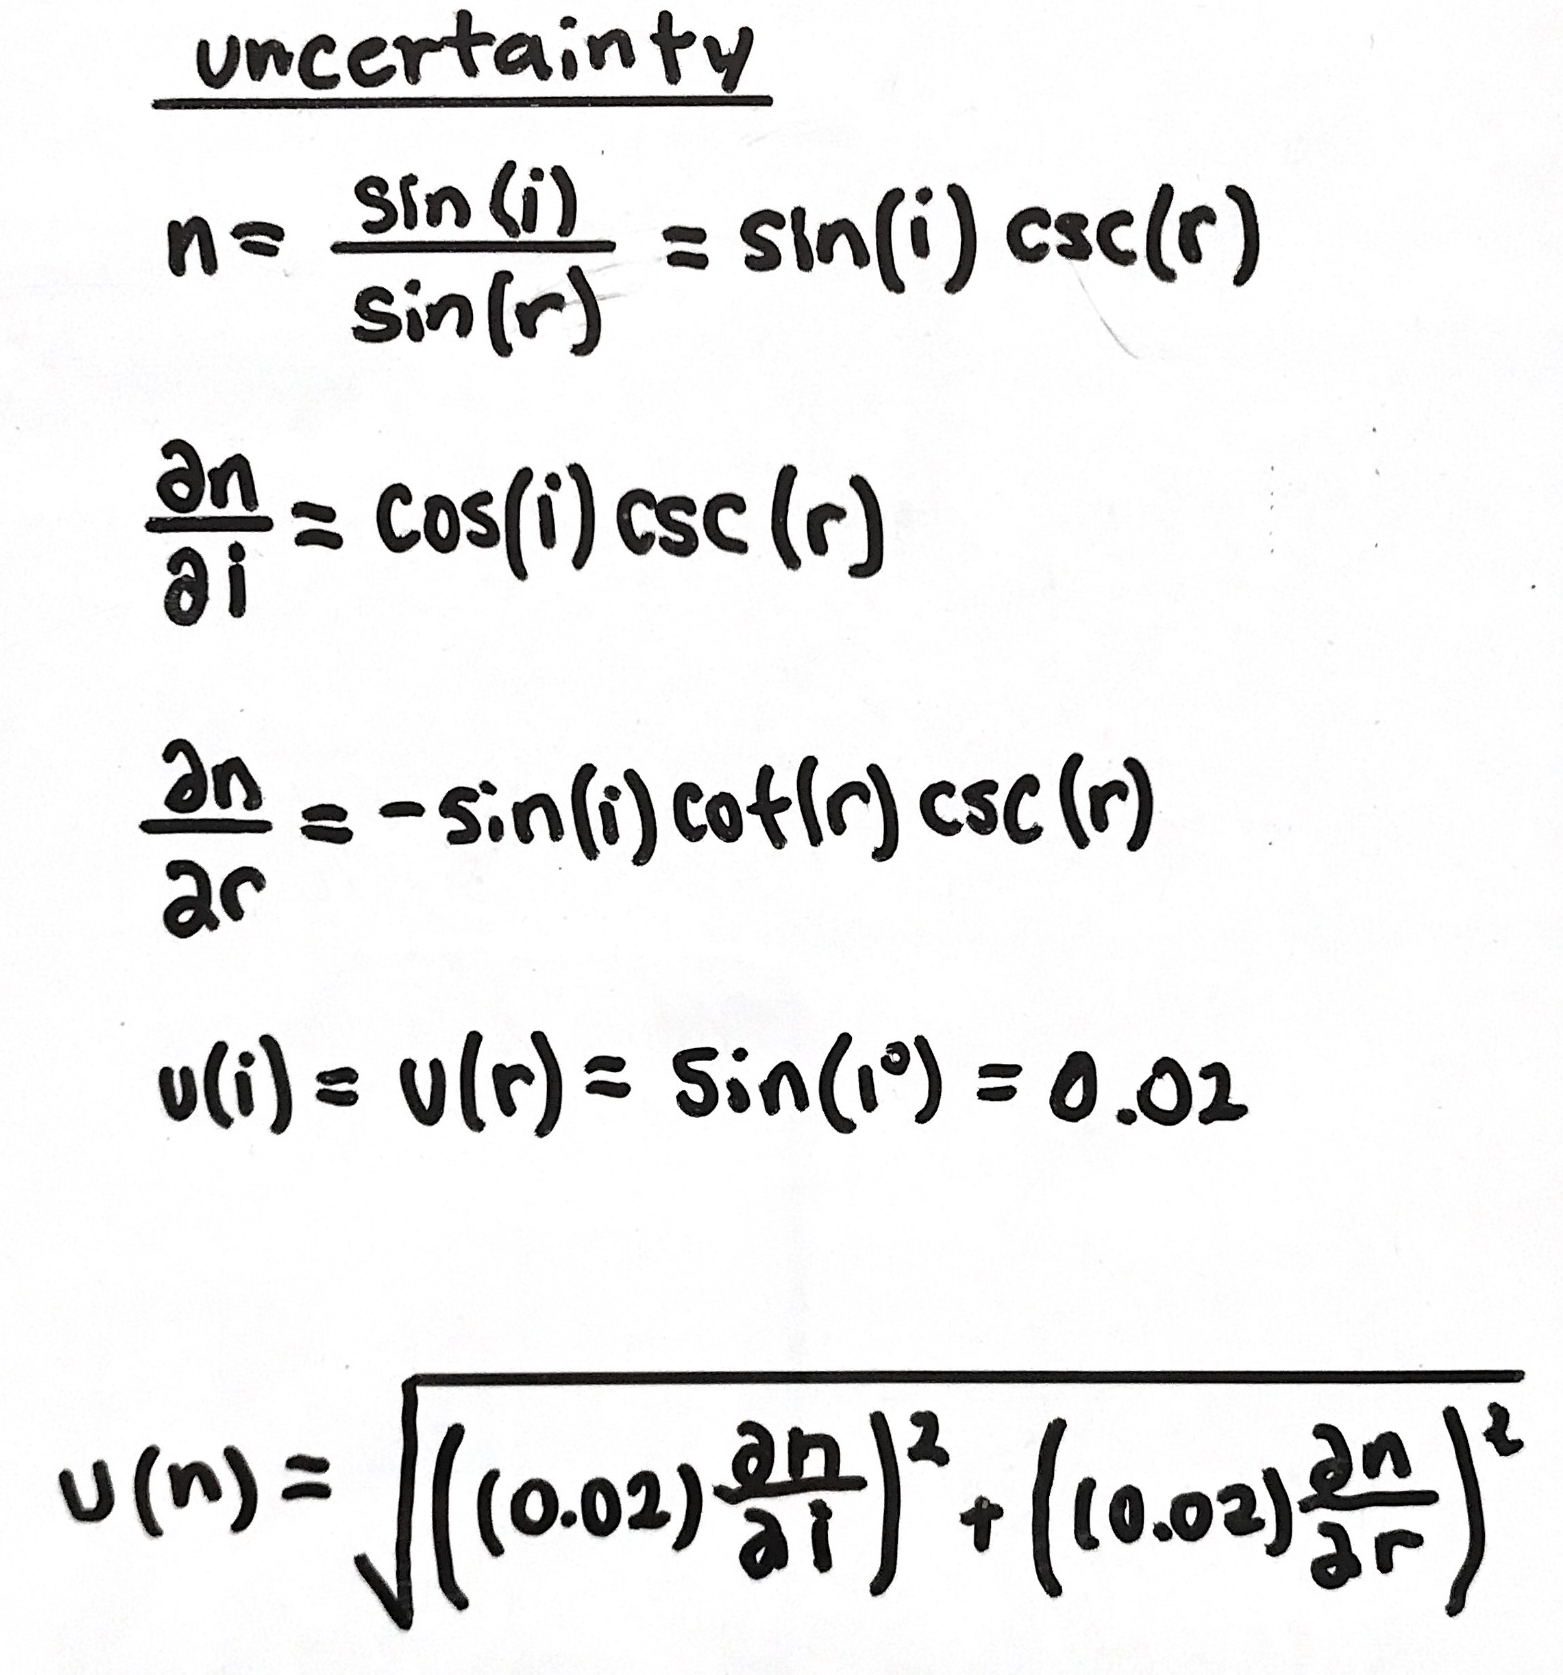 uncertainty
n = sin(i)/sin(r) = sin(i) csc(r)
∂n/∂i = cos(i) csc(r)
∂n/∂r = -sin(i) cot(r) csc(r)
u(i) = u(r) = sin(1°) = 0.02
u(n) = √(((0.02) ∂n/∂i)² + ((0.02) ∂n/∂r)²)